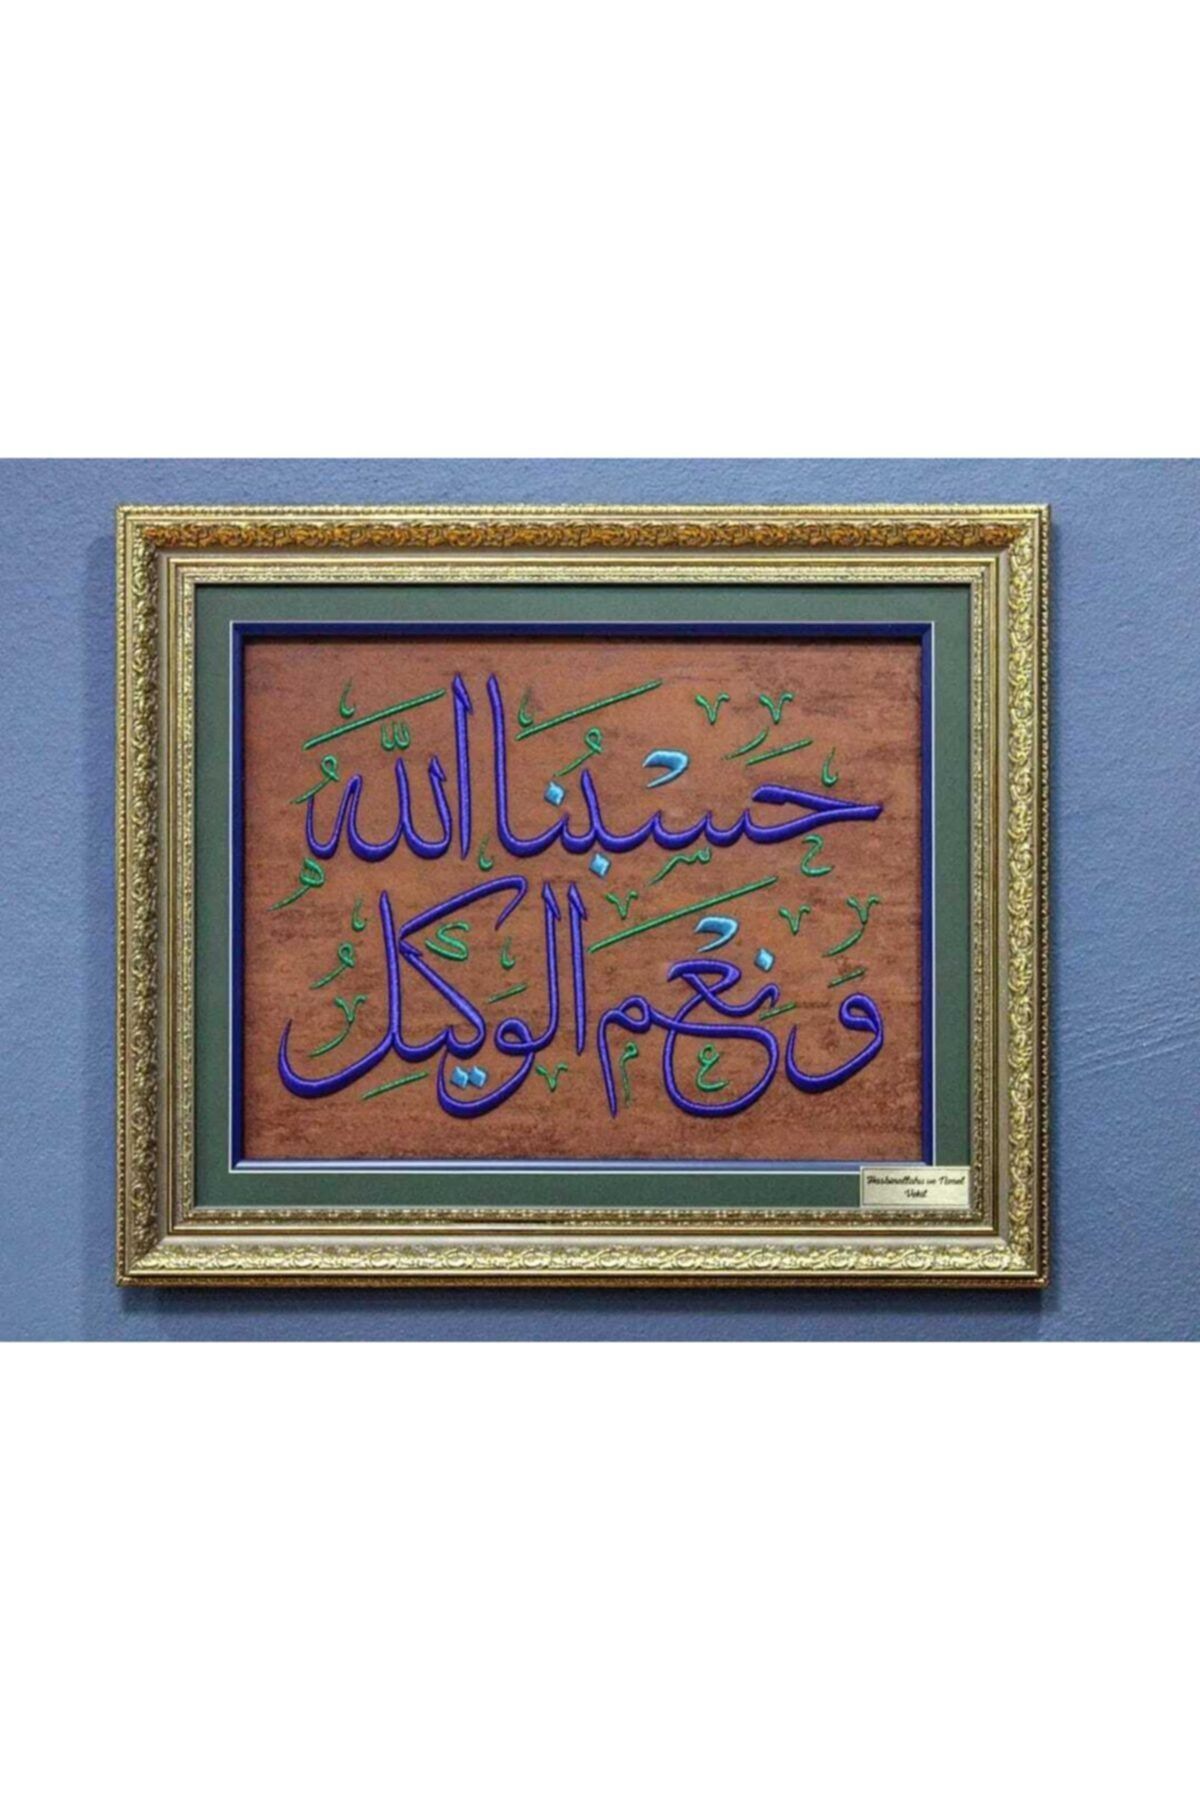 حَسْبُنَا اللّٰهُ
وَنِعْمَ الْوَكِيلُ
Hasbinallahu ve Nimel
Vekil